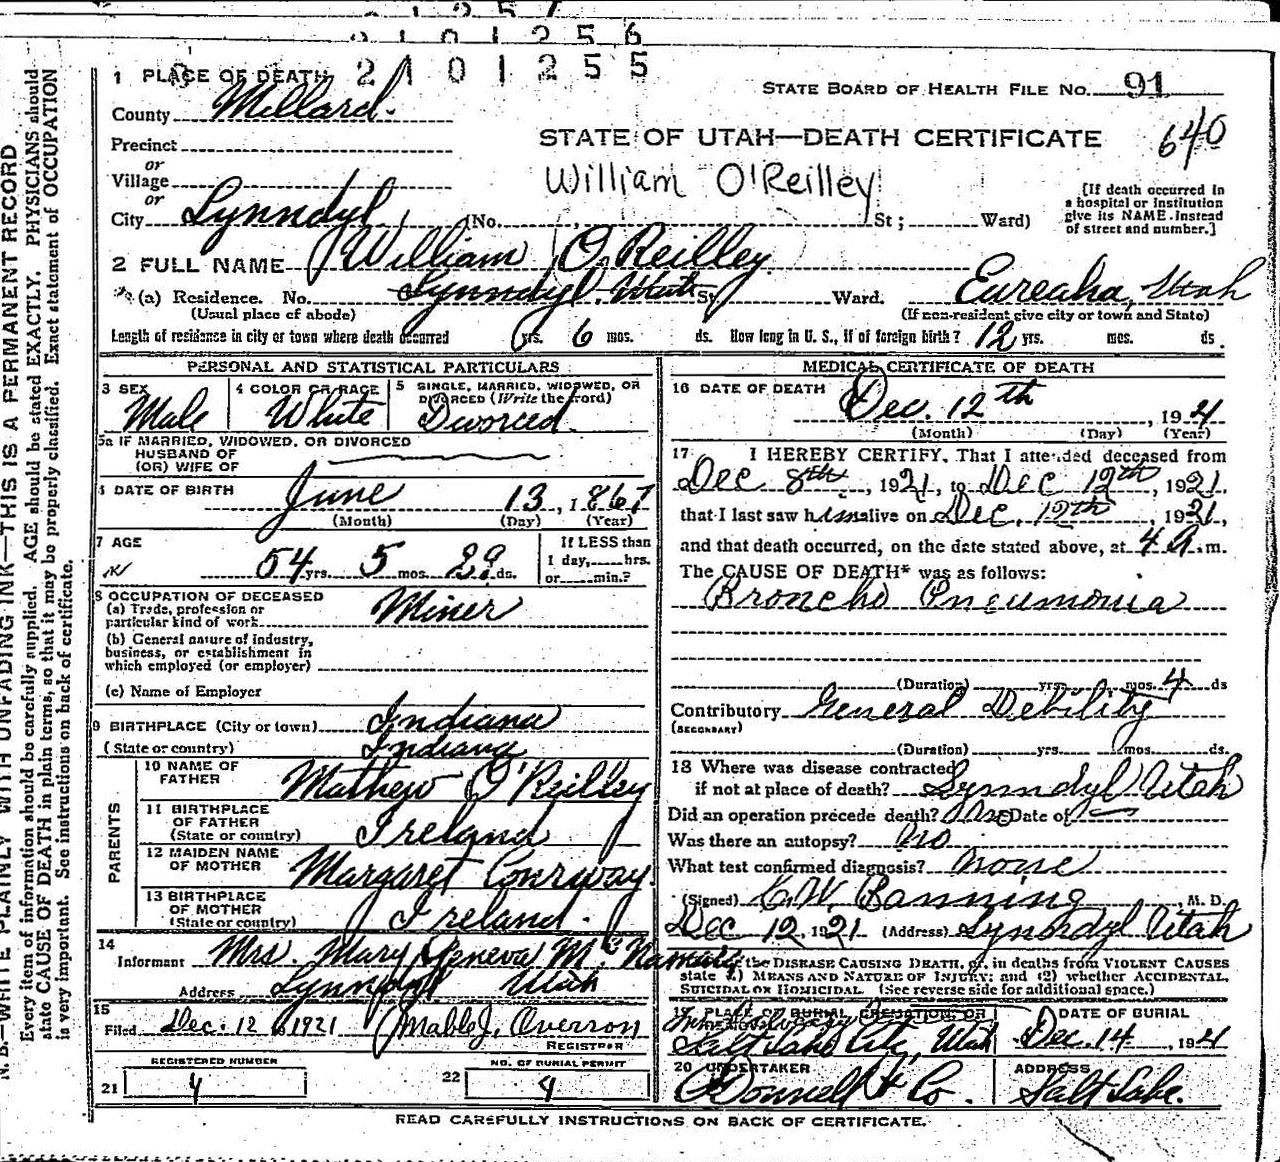 2 1 0 1 2 5 6
2 1 0 1 2 5 5
1 PLACE OF DEATH
STATE BOARD OF HEALTH FILE NO. 91
County Millard.
STATE OF UTAH—DEATH CERTIFICATE 640
Precinct
or
Village
William O'Reilley
or
City Lynndyl, (No. St; Ward)
[If death occurred in
a hospital or institution
give its NAME. Instead
of street and number.]
2 FULL NAME William O. Reilley
(a) Residence. No. Lynndyl. Utah St. Ward. Eureaka, Utah
(Usual place of abode) (If non-resident give city or town and State)
Length of residence in city or town where death occurred yrs. 6 mos. ds. How long in U. S., if of foreign birth? 12 yrs. mos. ds.
PERSONAL AND STATISTICAL PARTICULARS
3 SEX Male
4 COLOR OR RACE White
5 SINGLE, MARRIED, WIDOWED, OR
DIVORCED (Write the word)
Divorced
5a IF MARRIED, WIDOWED, OR DIVORCED
HUSBAND OF
(OR) WIFE OF
DATE OF BIRTH June 13, 1867
(Month) (Day) (Year)
7 AGE 54 yrs. 5 mos. 29 ds.
If LESS than
1 day, hrs.
or min.?
8 OCCUPATION OF DECEASED
(a) Trade, profession or
particular kind of work Miner
(b) General nature of industry,
business, or establishment in
which employed (or employer)
(c) Name of Employer
9 BIRTHPLACE (City or town) Indiana
(State or country) Indiana
PARENTS
10 NAME OF
FATHER Mathew O'Reilley
11 BIRTHPLACE
OF FATHER
(State or country) Ireland
12 MAIDEN NAME
OF MOTHER Margaret Conrway.
13 BIRTHPLACE
OF MOTHER
(State or country) Ireland.
14
Informant Mrs. Mary Geneva McNamara
Address Lynndyl Utah
15
Filed Dec. 12 1921 Mable J. Overson
REGISTRAR
REGISTERED NUMBER
21 4
NO. OF BURIAL PERMIT
22 4
MEDICAL CERTIFICATE OF DEATH
16 DATE OF DEATH Dec. 12th, 1921
(Month) (Day) (Year)
17 I HEREBY CERTIFY, That I attended deceased from
Dec 8th, 1921, to Dec 12th, 1921,
that I last saw him alive on Dec. 12th, 1921,
and that death occurred, on the date stated above, at 4 A. m.
The CAUSE OF DEATH* was as follows:
Broncho Pneumonia
(Duration) yrs. mos. 4 ds
Contributory General Debility
(SECONDARY)
(Duration) yrs. mos. ds.
18 Where was disease contracted
if not at place of death? Lynndyl Utah
Did an operation precede death? Date of
Was there an autopsy? No
What test confirmed diagnosis? None
(Signed) C.W. Banning, M. D.
Dec 12, 1921 (Address) Lynndyl Utah
the DISEASE CAUSING DEATH, or, in deaths from VIOLENT CAUSES
state 1.) MEANS AND NATURE OF INJURY; and (2) whether ACCIDENTAL,
SUICIDAL OR HOMICIDAL. (See reverse side for additional space.)
19 PLACE OF BURIAL, CREMATION, OR
Salt Lake City, Utah
DATE OF BURIAL
Dec. 14, 1921
20 UNDERTAKER
O'Donnell & Co.
ADDRESS
Salt Lake.
READ CAREFULLY INSTRUCTIONS ON BACK OF CERTIFICATE.
N. B.—WRITE PLAINLY WITH UNFADING INK—THIS IS A PERMANENT RECORD
Every item of information should be carefully supplied. AGE should be stated EXACTLY. PHYSICIANS should
state CAUSE OF DEATH in plain terms, so that it may be properly classified. Exact statement of OCCUPATION
is very important. See instructions on back of certificate.